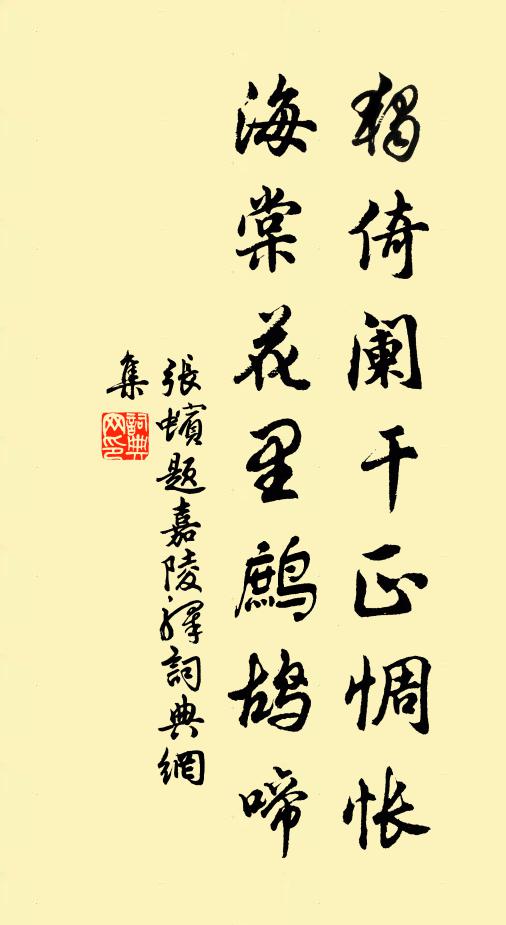 獨倚阑干正惆怅
海棠花里鷓鴣啼
張蠙题嘉陵驛詞典網
集
詞典
网印